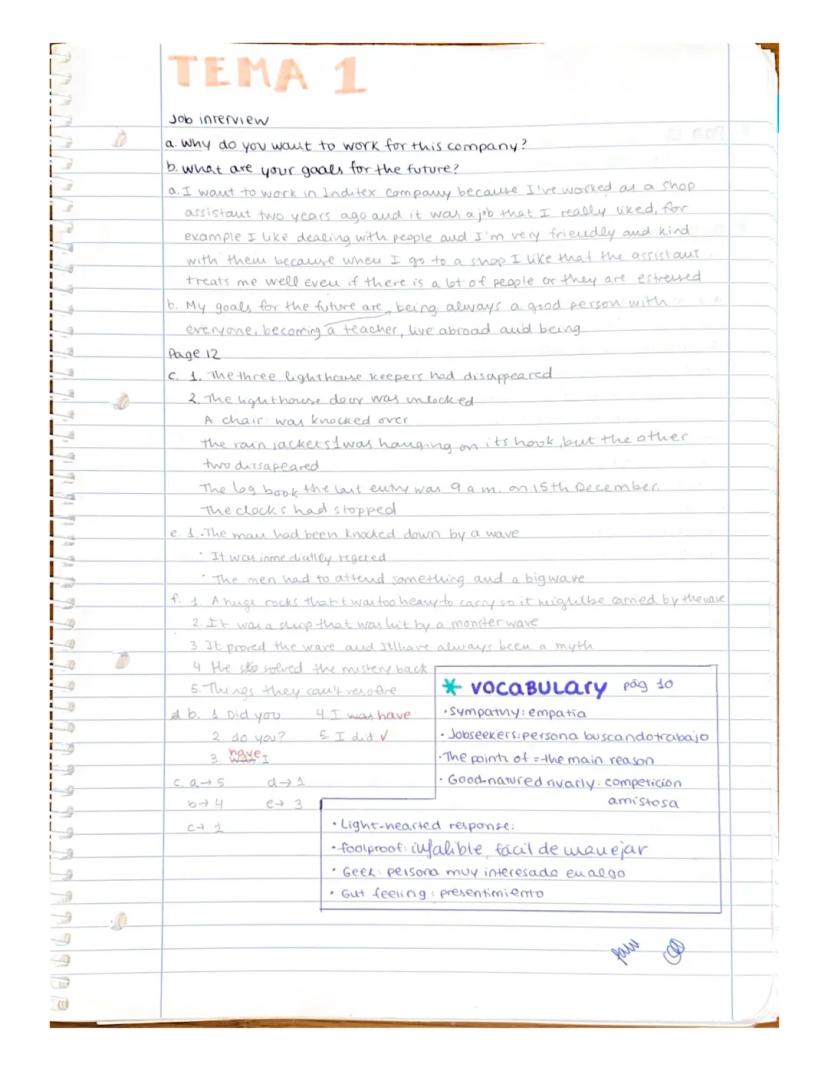 TEMA 1
Job interview
a. Why do you want to work for this company?
b. what are your goals for the future?
a. I want to work in Inditex company because I've worked as a shop
assistant two years ago and it was a job that I really liked, for
example I like dealing with people and I'm very friendly and kind
with them because when I go to a shop I like that the assistant
treats me well even if there is a lot of people or they are estressed
b. My goals for the future are, being always a good person with
everyone, becoming a teacher, live abroad and being
Page 12
c. 1. The three lighthouse keepers had disappeared
2. The lighthouse door was unlocked
A chair was knocked over
The rain jackets 1 was hanging on its hook, but the other
two dissapeared
The log book the last entry was 9 a.m. on 15th December.
The clocks had stopped
e 1.-The man had been knocked down by a wave
· It was
· The men had to attend something and a big wave
f. 1 A huge rocks that it was too heavy to carry so it might be carried by the wave
2. It was a ship that was hit by a monster wave
3 It proved the wave and have always been a myth
4 He solved the mistery back
5. Things they can't
d b. 1 Did you 4 I was have
2. do you? 5 I did √
3. have I
c. a→5 d→1
b→4 e→3
c→
* VOCABULARY pág 10
· Sympathy: empatia
· Jobseekers: persona buscando trabajo
· The point of = the main reason
· Good-natured rivarly: competición
amistosa
· Light-hearted response:
· foolproof: infalible, fácil de manejar
· Geek: persona muy interesado en algo
· Gut feeling: presentimiento